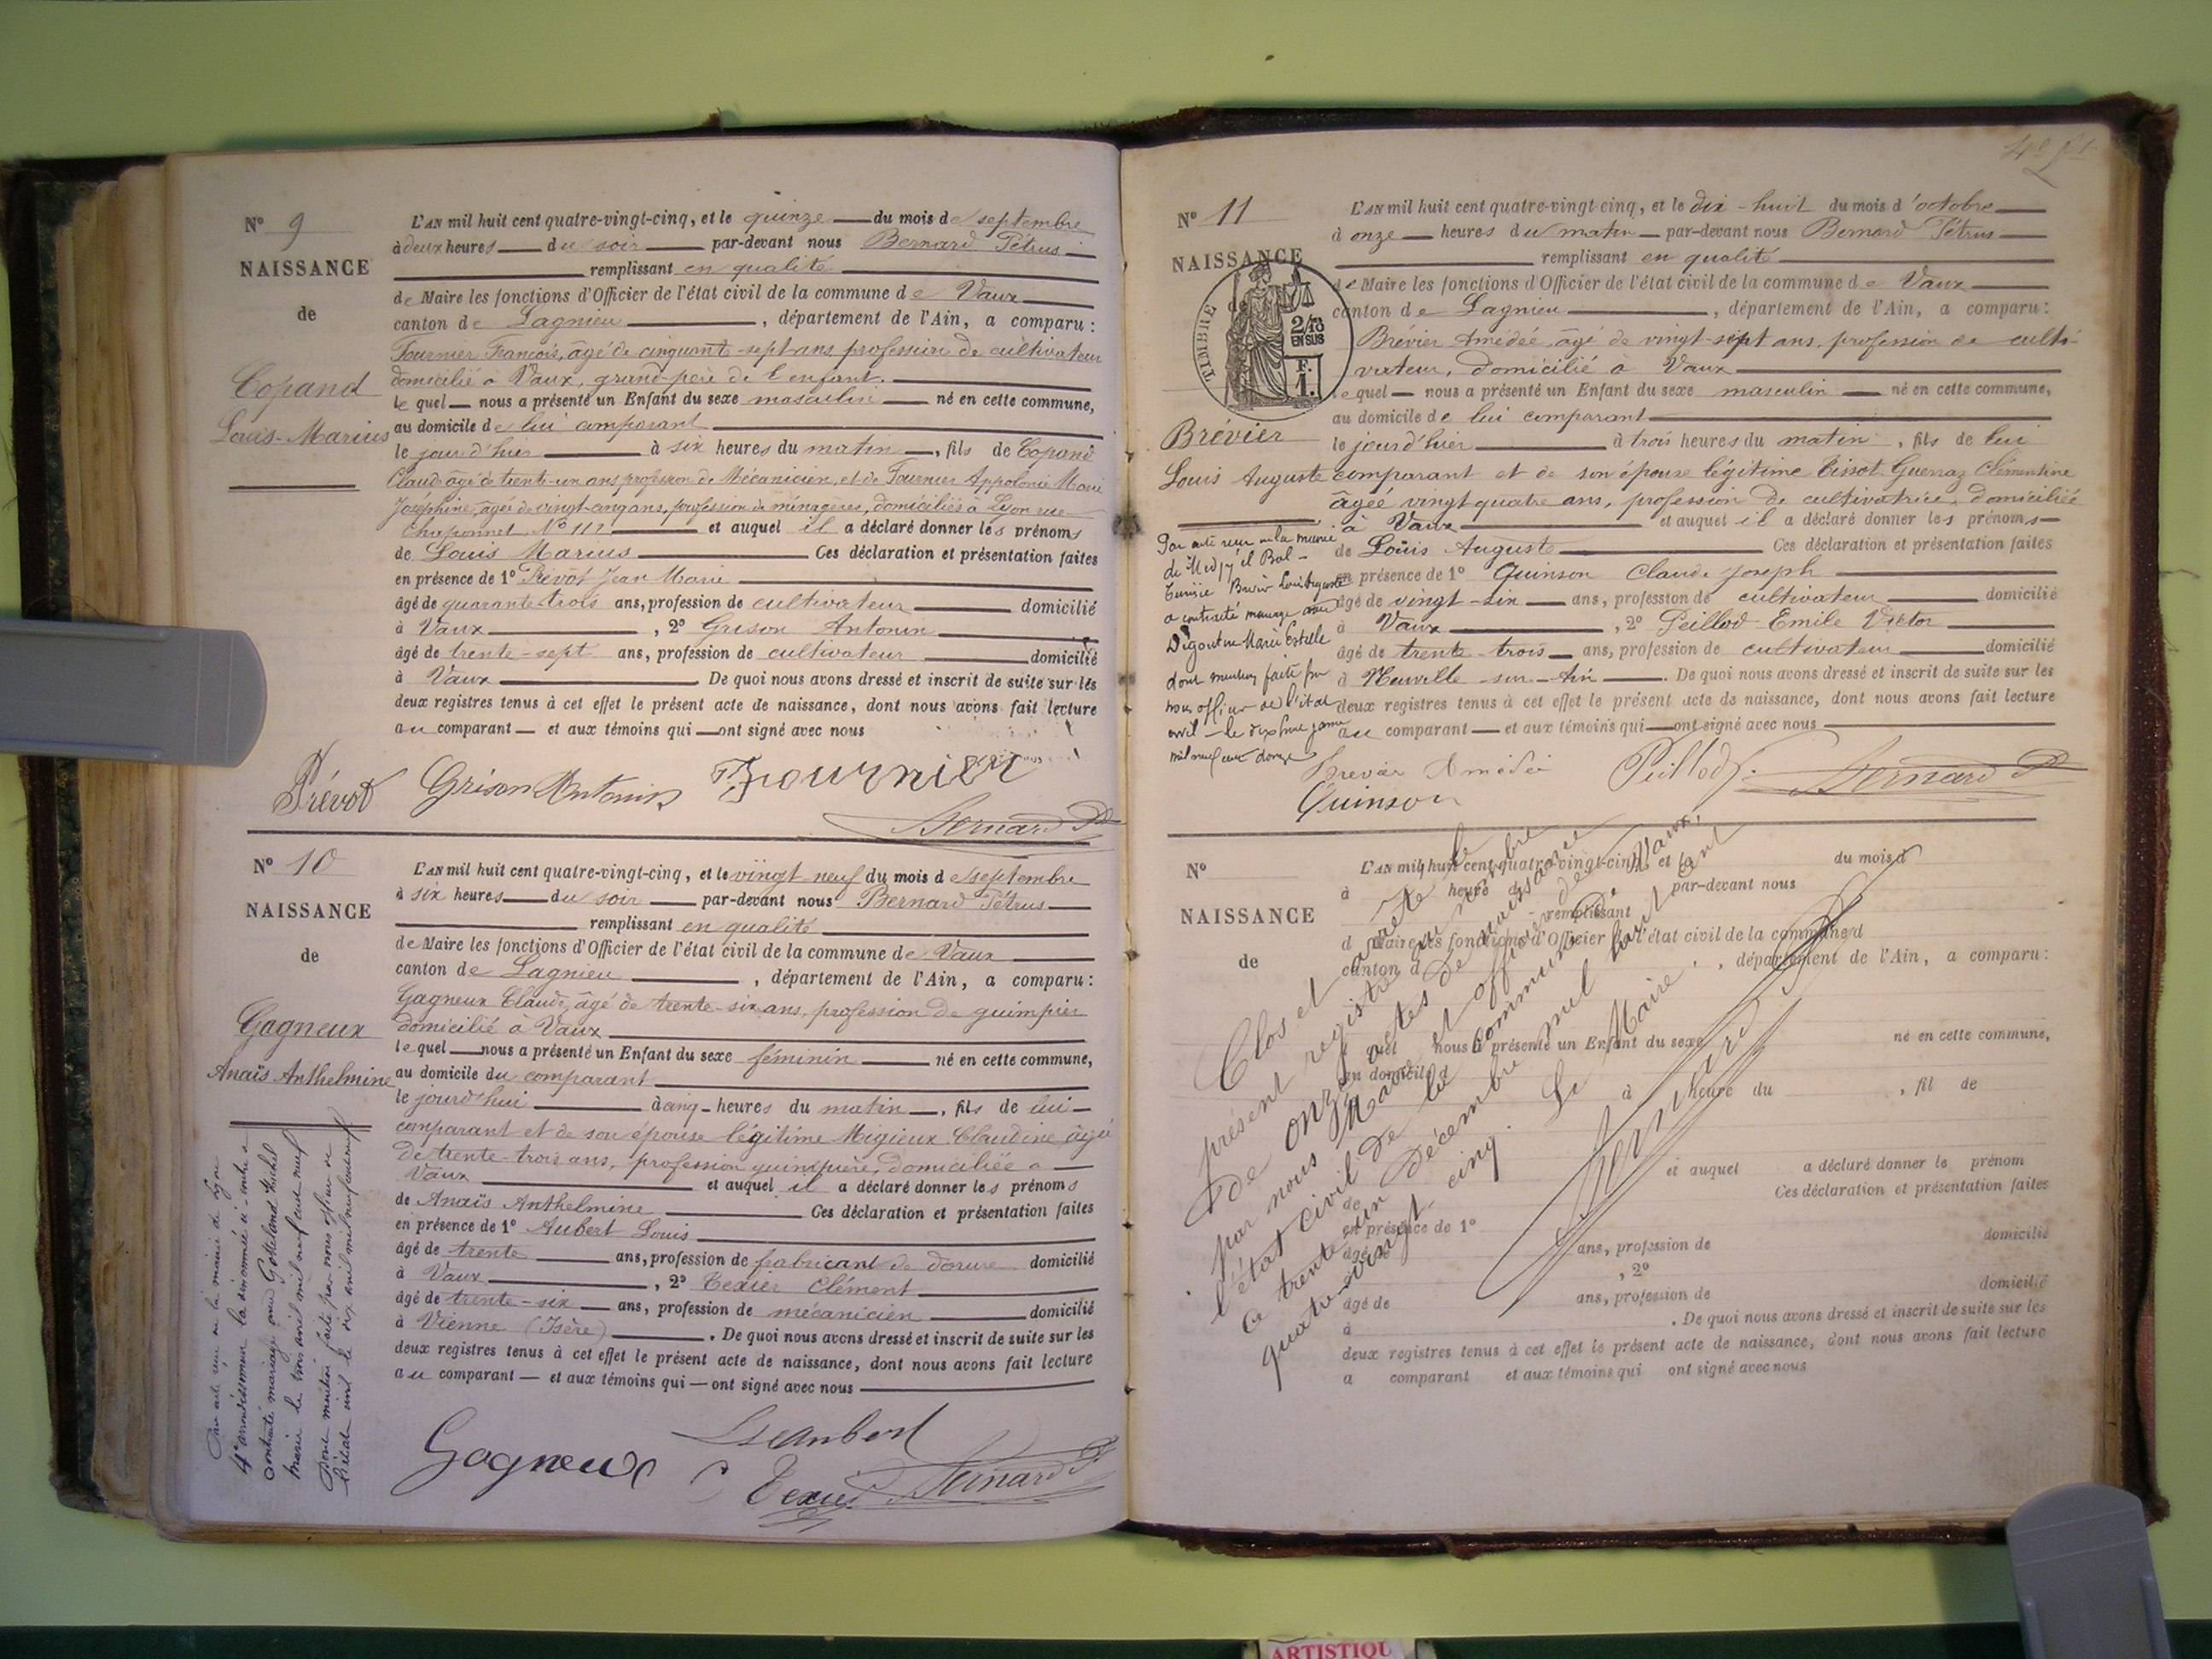 Nº 9
NAISSANCE
de
Copand
Louis-Marius
L'AN mil huit cent quatre-vingt-cinq, et le quinze du mois de septembre
à deux heures du soir par-devant nous Bernard Pétrus
remplissant en qualité
de Maire les fonctions d'Officier de l'état civil de la commune de Vaux
canton de Lagnieu, département de l'Ain, a comparu :
Fournier François, âgé de cinquante-sept ans profession de cultivateur
domicilié à Vaux, grand-père de l'enfant.
lequel nous a présenté un Enfant du sexe masculin né en cette commune,
au domicile de lui comparant
le jour d'hier à six heures du matin, fils de Copand
Claude âgé de trente-un ans profession de Mécanicien, et de Fournier Appolonie Marie
Joséphine, âgée de vingt-cinq ans, profession de ménagères, domiciliés à Lyon rue
Chaponnet Nº 112 et auquel il a déclaré donner les prénoms
de Louis Marius Ces déclaration et présentation faites
en présence de 1º Prévôt Jean Marie
âgé de quarante-trois ans, profession de cultivateur domicilié
à Vaux, 2º Grison Antonin
âgé de trente-sept ans, profession de cultivateur domicilié
à Vaux De quoi nous avons dressé et inscrit de suite sur les
deux registres tenus à cet effet le présent acte de naissance, dont nous avons fait lecture
au comparant et aux témoins qui ont signé avec nous
Prévot Grison Antonin Fournier
Bernard P
Nº 10
NAISSANCE
de
Gagneux
Anaïs Anthelmine
L'AN mil huit cent quatre-vingt-cinq, et le vingt neuf du mois de septembre
à six heures du soir par-devant nous Bernard Pétrus
remplissant en qualité
de Maire les fonctions d'Officier de l'état civil de la commune de Vaux
canton de Lagnieu, département de l'Ain, a comparu :
Gagneux Claude, âgé de trente-six ans, profession de guimpier
domicilié à Vaux
lequel nous a présenté un Enfant du sexe féminin né en cette commune,
au domicile du comparant
le jourd'hui à cinq heures du matin, fils de lui
comparant et de son épouse légitime Migieux Claudine âgée
de trente-trois ans, profession guimpière, domiciliée à
Vaux et auquel il a déclaré donner les prénoms
de Anaïs Anthelmine Ces déclaration et présentation faites
en présence de 1º Aubert Louis
âgé de trente ans, profession de fabricant de dorure domicilié
à Vaux, 2º Texier Clément
âgé de trente-six ans, profession de mécanicien domicilié
à Vienne (Isère). De quoi nous avons dressé et inscrit de suite sur les
deux registres tenus à cet effet le présent acte de naissance, dont nous avons fait lecture
au comparant et aux témoins qui ont signé avec nous
Par acte reçu en la mairie de Lyon
4e arrondissement la dénommée ci-contre a
contracté mariage avec
marie le trois avril mil neuf cent neuf
Dont mention faite par nous officier de
l'état civil le dix avril mil neuf cent neuf
Gagneux Aubert
Texier Bernard P
Nº 11
NAISSANCE
de
TIMBRE
2/10
EN SUS
F.
1.
Brévier
Louis Auguste
L'AN mil huit cent quatre-vingt-cinq, et le dix-huit du mois d'octobre
à onze heures du matin par-devant nous Bernard Pétrus
remplissant en qualité
de Maire les fonctions d'Officier de l'état civil de la commune de Vaux
canton de Lagnieu, département de l'Ain, a comparu :
Brévier Amédée, âgé de vingt-sept ans, profession de culti-
vateur, domicilié à Vaux
lequel nous a présenté un Enfant du sexe masculin né en cette commune,
au domicile de lui comparant
le jourd'hier à trois heures du matin, fils de lui
comparant et de son épouse légitime Tissot Guerraz Clémentine
âgée vingt quatre ans, profession de cultivatrice, domiciliée
à Vaux et auquel il a déclaré donner les prénoms
de Louis Auguste Ces déclaration et présentation faites
en présence de 1º Quinson Claude Joseph
âgé de vingt-six ans, profession de cultivateur domicilié
à Vaux, 2º Peillod Emile Victor
âgé de trente-trois ans, profession de cultivateur domicilié
à Neuville-sur-Ain. De quoi nous avons dressé et inscrit de suite sur les
deux registres tenus à cet effet le présent acte de naissance, dont nous avons fait lecture
au comparant et aux témoins qui ont signé avec nous
Par acte reçu en la mairie
de Medjez el Bab
Tunisie Brévier Louis Auguste
a contracté mariage avec
Marie Estelle
dont mention faite par
nous officier de l'état
civil le
mil neuf cent douze
Brevier Amédée Peillod Bernard P
Quinson
Nº
NAISSANCE
de
L'AN mil huit cent quatre-vingt-cinq, et le du mois d
à heure d par-devant nous
remplissant
d Maire les fonctions d'Officier de l'état civil de la commune d
canton d, département de l'Ain, a comparu :
l quel nous a présenté un Enfant du sexe né en cette commune,
au domicile d
à heure du, fil de
et auquel a déclaré donner le prénom
de Ces déclaration et présentation faites
en présence de 1º
âgé de ans, profession de domicilié
, 2º
âgé de ans, profession de domicilié
à . De quoi nous avons dressé et inscrit de suite sur les
deux registres tenus à cet effet le présent acte de naissance, dont nous avons fait lecture
a comparant et aux témoins qui ont signé avec nous
Clos et arrêté le
présent registre au nombre
de onze actes de naissance
par nous Maire et officier de
l'état civil de la commune de Vaux,
ce trente un Décembre mil huit cent
quatre-vingt cinq. Le Maire,
Bernard P
ARTISTIQU